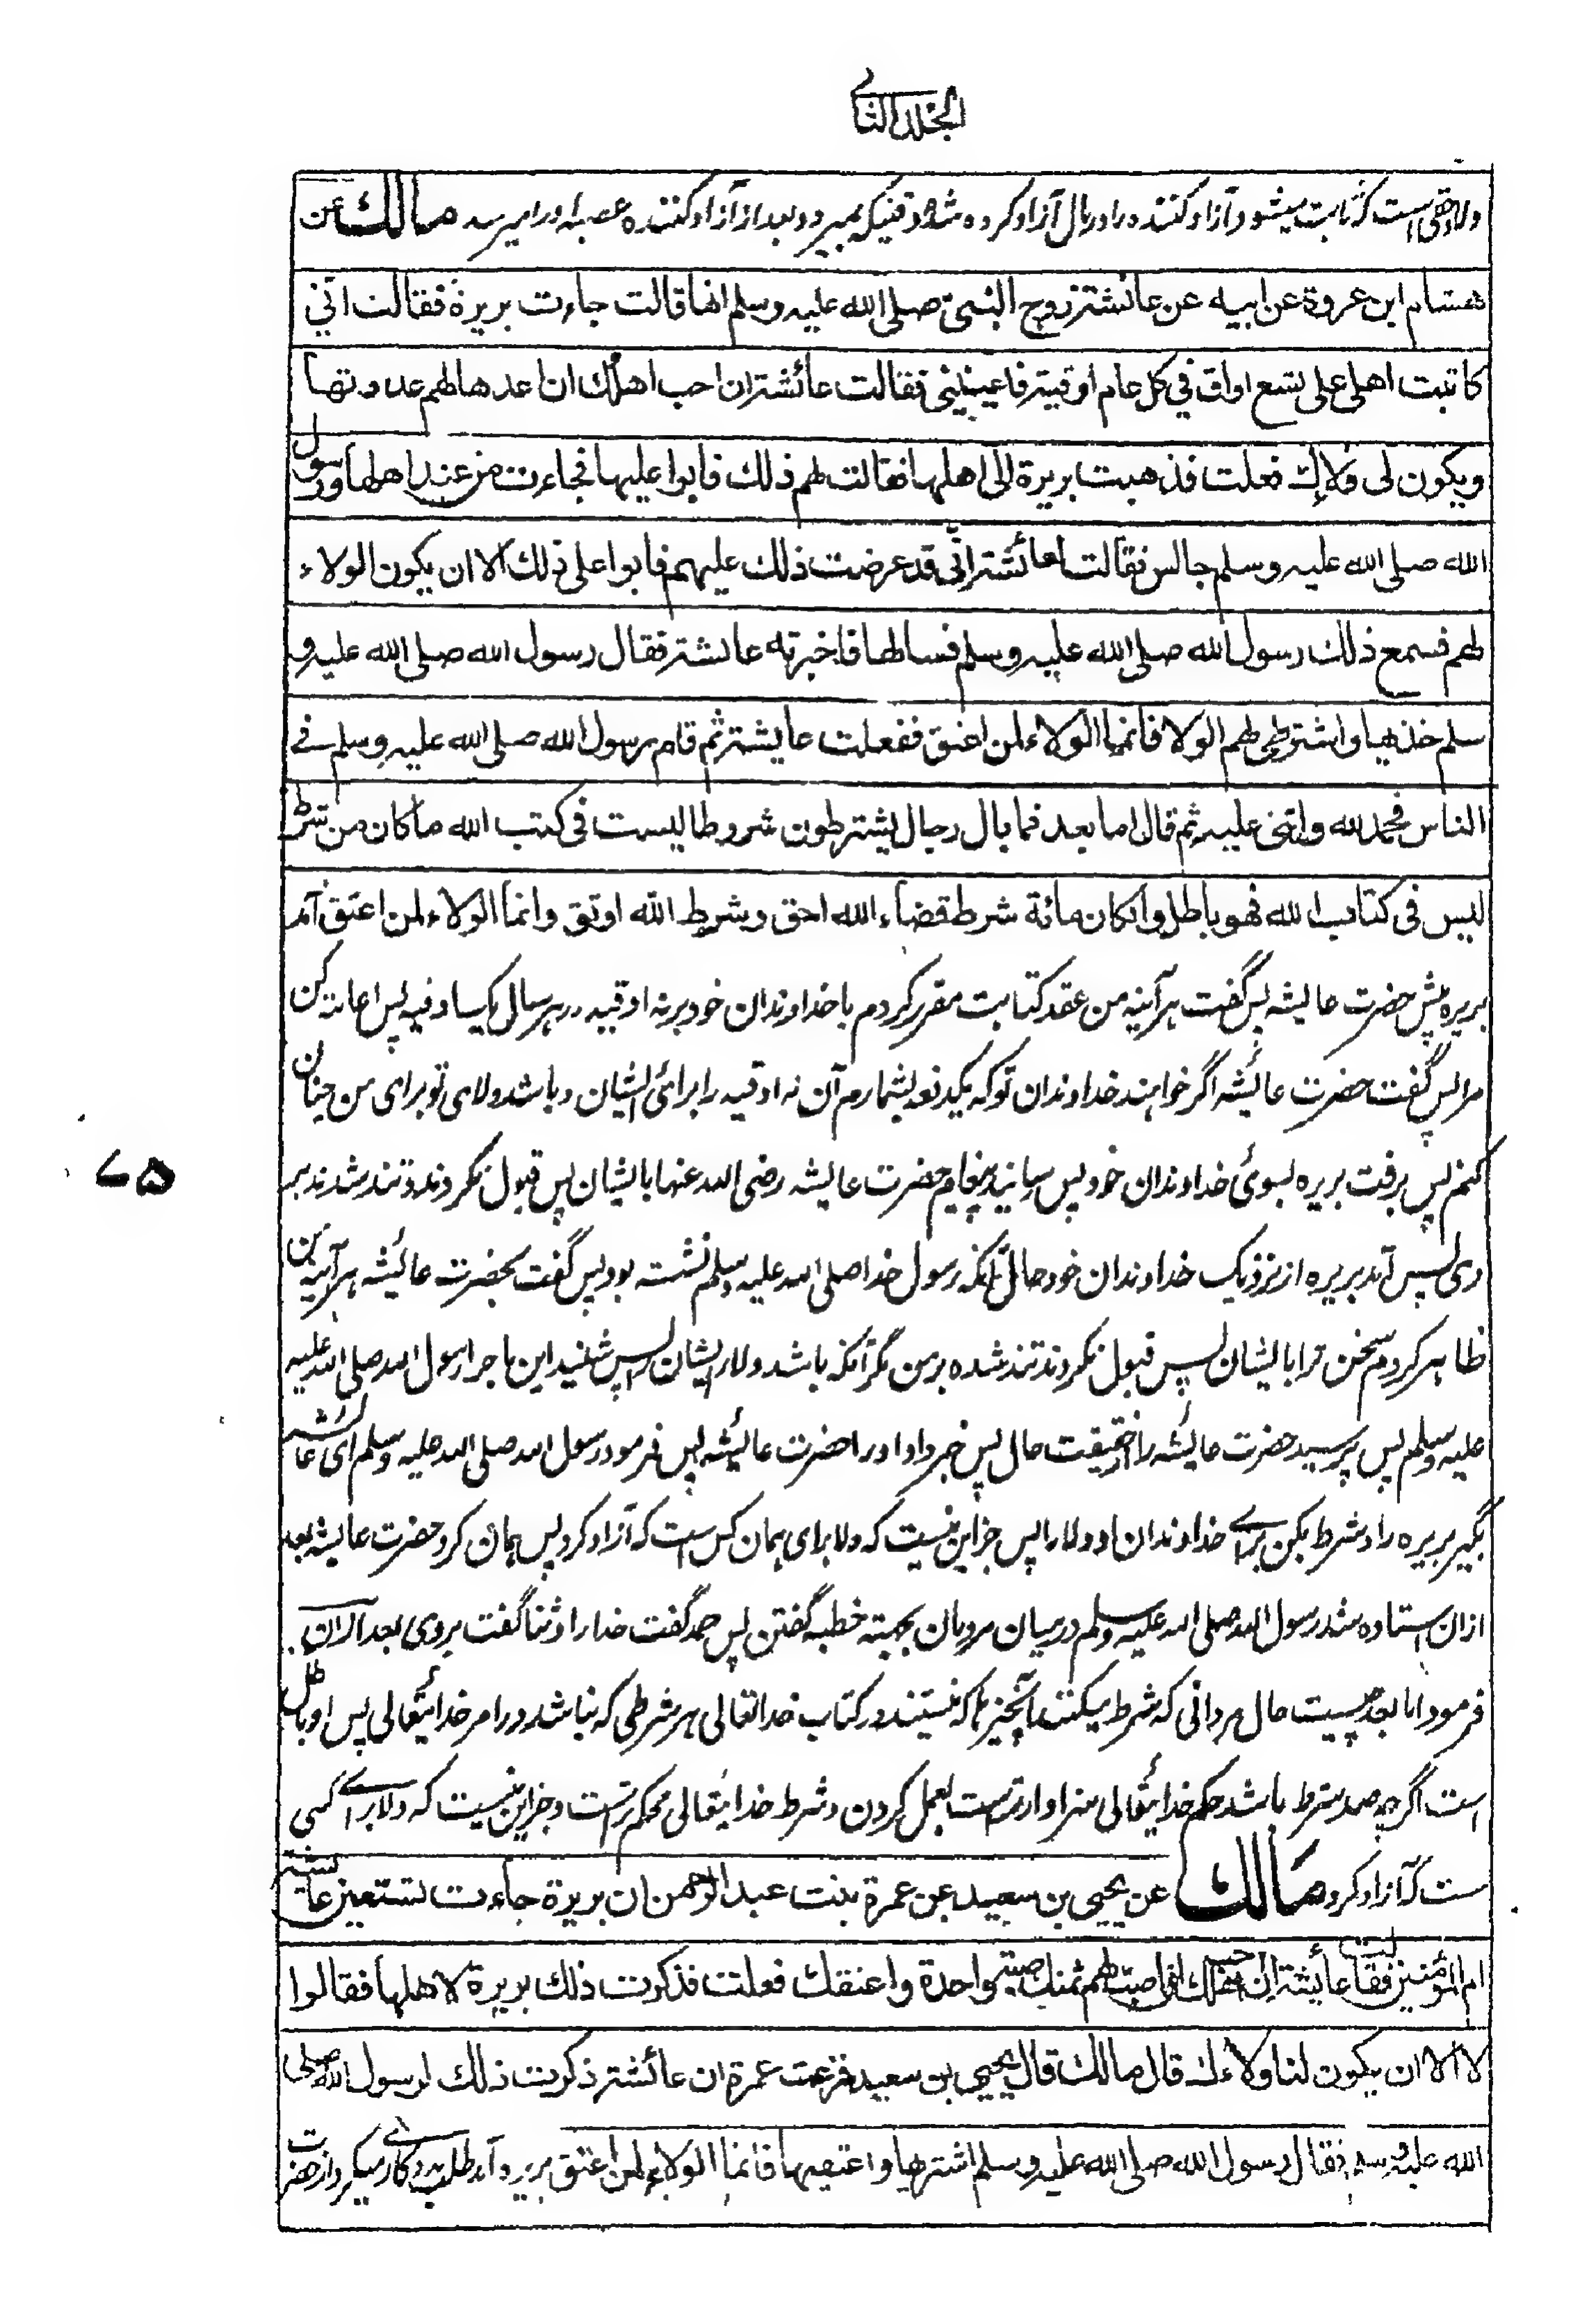 الجلد الثانی
ولا حقی است که ثابت میشود آزاد کننده را در مال آزاد کرده شده وقتیکه بمیرد و بعد از آزاد کننده عصبه اورا میرسد مالك عن
هشام ابن عروة عن ابيه عن عائشة زوج النبی صلی الله عليه وسلم انها قالت جاءت بريرة فقالت انّي
كاتبت اهلی علی تسع اواق في كل عام اوقية فاعينينی فقالت عائشة ان احب اهلك ان اعدها لهم عددتها
ويكون لی ولاءك فعلت فذهبت بريرة الی اهلها فقالت لهم ذلك فابوا عليها فجاءت من عند اهلها ورسول
الله صلی الله عليه وسلم جالس فقالت لعائشة انّی قد عرضت ذلك عليهم فابوا علی ذلك الا ان يكون الولاء
لهم فسمع ذلك رسول الله صلی الله عليه وسلم فسالها فاخبرته عائشة فقال رسول الله صلی الله عليه و
سلم خذيها واشترطی لهم الولا فانما الولاء لمن اعتق ففعلت عايشة ثم قام رسول الله صلی الله عليه وسلم فے
الناس فحمد الله واثنی عليه ثم قال اما بعد فما بال رجال يشترطون شروطا ليست فی كتب الله ما كان من شرط
ليس فی كتاب الله فهو باطل وان كان مائة شرط قضاء الله احق وشرط الله اوثق وانما الولاء لمن اعتق آمد
بریره پیش حضرت عایشه پس گفت هر آینه من عقد کتابت مقرر کردم با خداوندان خود بر نه اوقیه در هر سال یک اوقیه پس اعانت کن
مرا پس گفت حضرت عائشه اگر خواهند خداوندان تو که یکدفعه بشمارم آن نه اوقیه را برای ایشان و باشد ولای تو برای من چنان
کنم پس برفت بریره بسوی خداوندان خود پس رسانید پیغام حضرت عایشه رضی الله عنها بایشان پس قبول نکردند و تند شدند بر
وی پس آمد بریره از نزدیک خداوندان خود حال آنکه رسول خدا صلی الله علیه وسلم نشسته بود پس گفت بحضرت عائشه هر آینه من
ظاهر کردم سخن ترا بایشان پس قبول نکردند تند شده بر من مگر آنکه باشد ولا برای ایشان پس شنید این ماجرا رسول الله صلی الله علیه
علیه وسلم پس پرسید حضرت عایشه را از حقیقت حال پس خبر داد او را حضرت عائشه پس فرمود رسول الله صلی الله علیه وسلم ای عائشه
بگیر بریره را و شرط بکن برای خداوندان او ولا را پس جز این نیست که ولا برای همان کس است که آزاد کرد پس همان کرد حضرت عایشه بعد
ازان استاده شد رسول الله صلی الله علیه وسلم درمیان مردمان بجهته خطبه گفتن پس حمد گفت خدا را و ثنا گفت بروی بعد ازان
فرمود اما بعد چیست حال مردانی که شرط میکنند آنچیزها که نیستند در کتاب خدا تعالی هر شرطی که نباشد در امر خدایتعالی پس او باطل
است اگرچه صد شرط باشد حکم خدایتعالی سزاوارتر است بعمل کردن و شرط خدایتعالی محکم تر است و جز این نیست که ولا برای کسی
ست که آزاد کرد مالك عن يحيی بن سعيد عن عمرة بنت عبد الرحمن ان بريرة جاءت تستعين عائشة
ام المؤمنين فقالت عايشة ان احب اهلك ان اصب لهم ثمنك صبة واحدة واعتقك فعلت فذكرت ذلك بريرة لاهلها فقالوا
لا الا ان يكون لنا ولاءك قال مالك قال يحيی بن سعيد فزعمت عمرة ان عائشة ذكرت ذلك لرسول الله صلی
الله عليه وسلم فقال رسول الله صلی الله عليه وسلم اشتريها واعتقيها فانما الولاء لمن اعتق بریره آمد طلب مددگاری میکرد از حضرت
۷۵